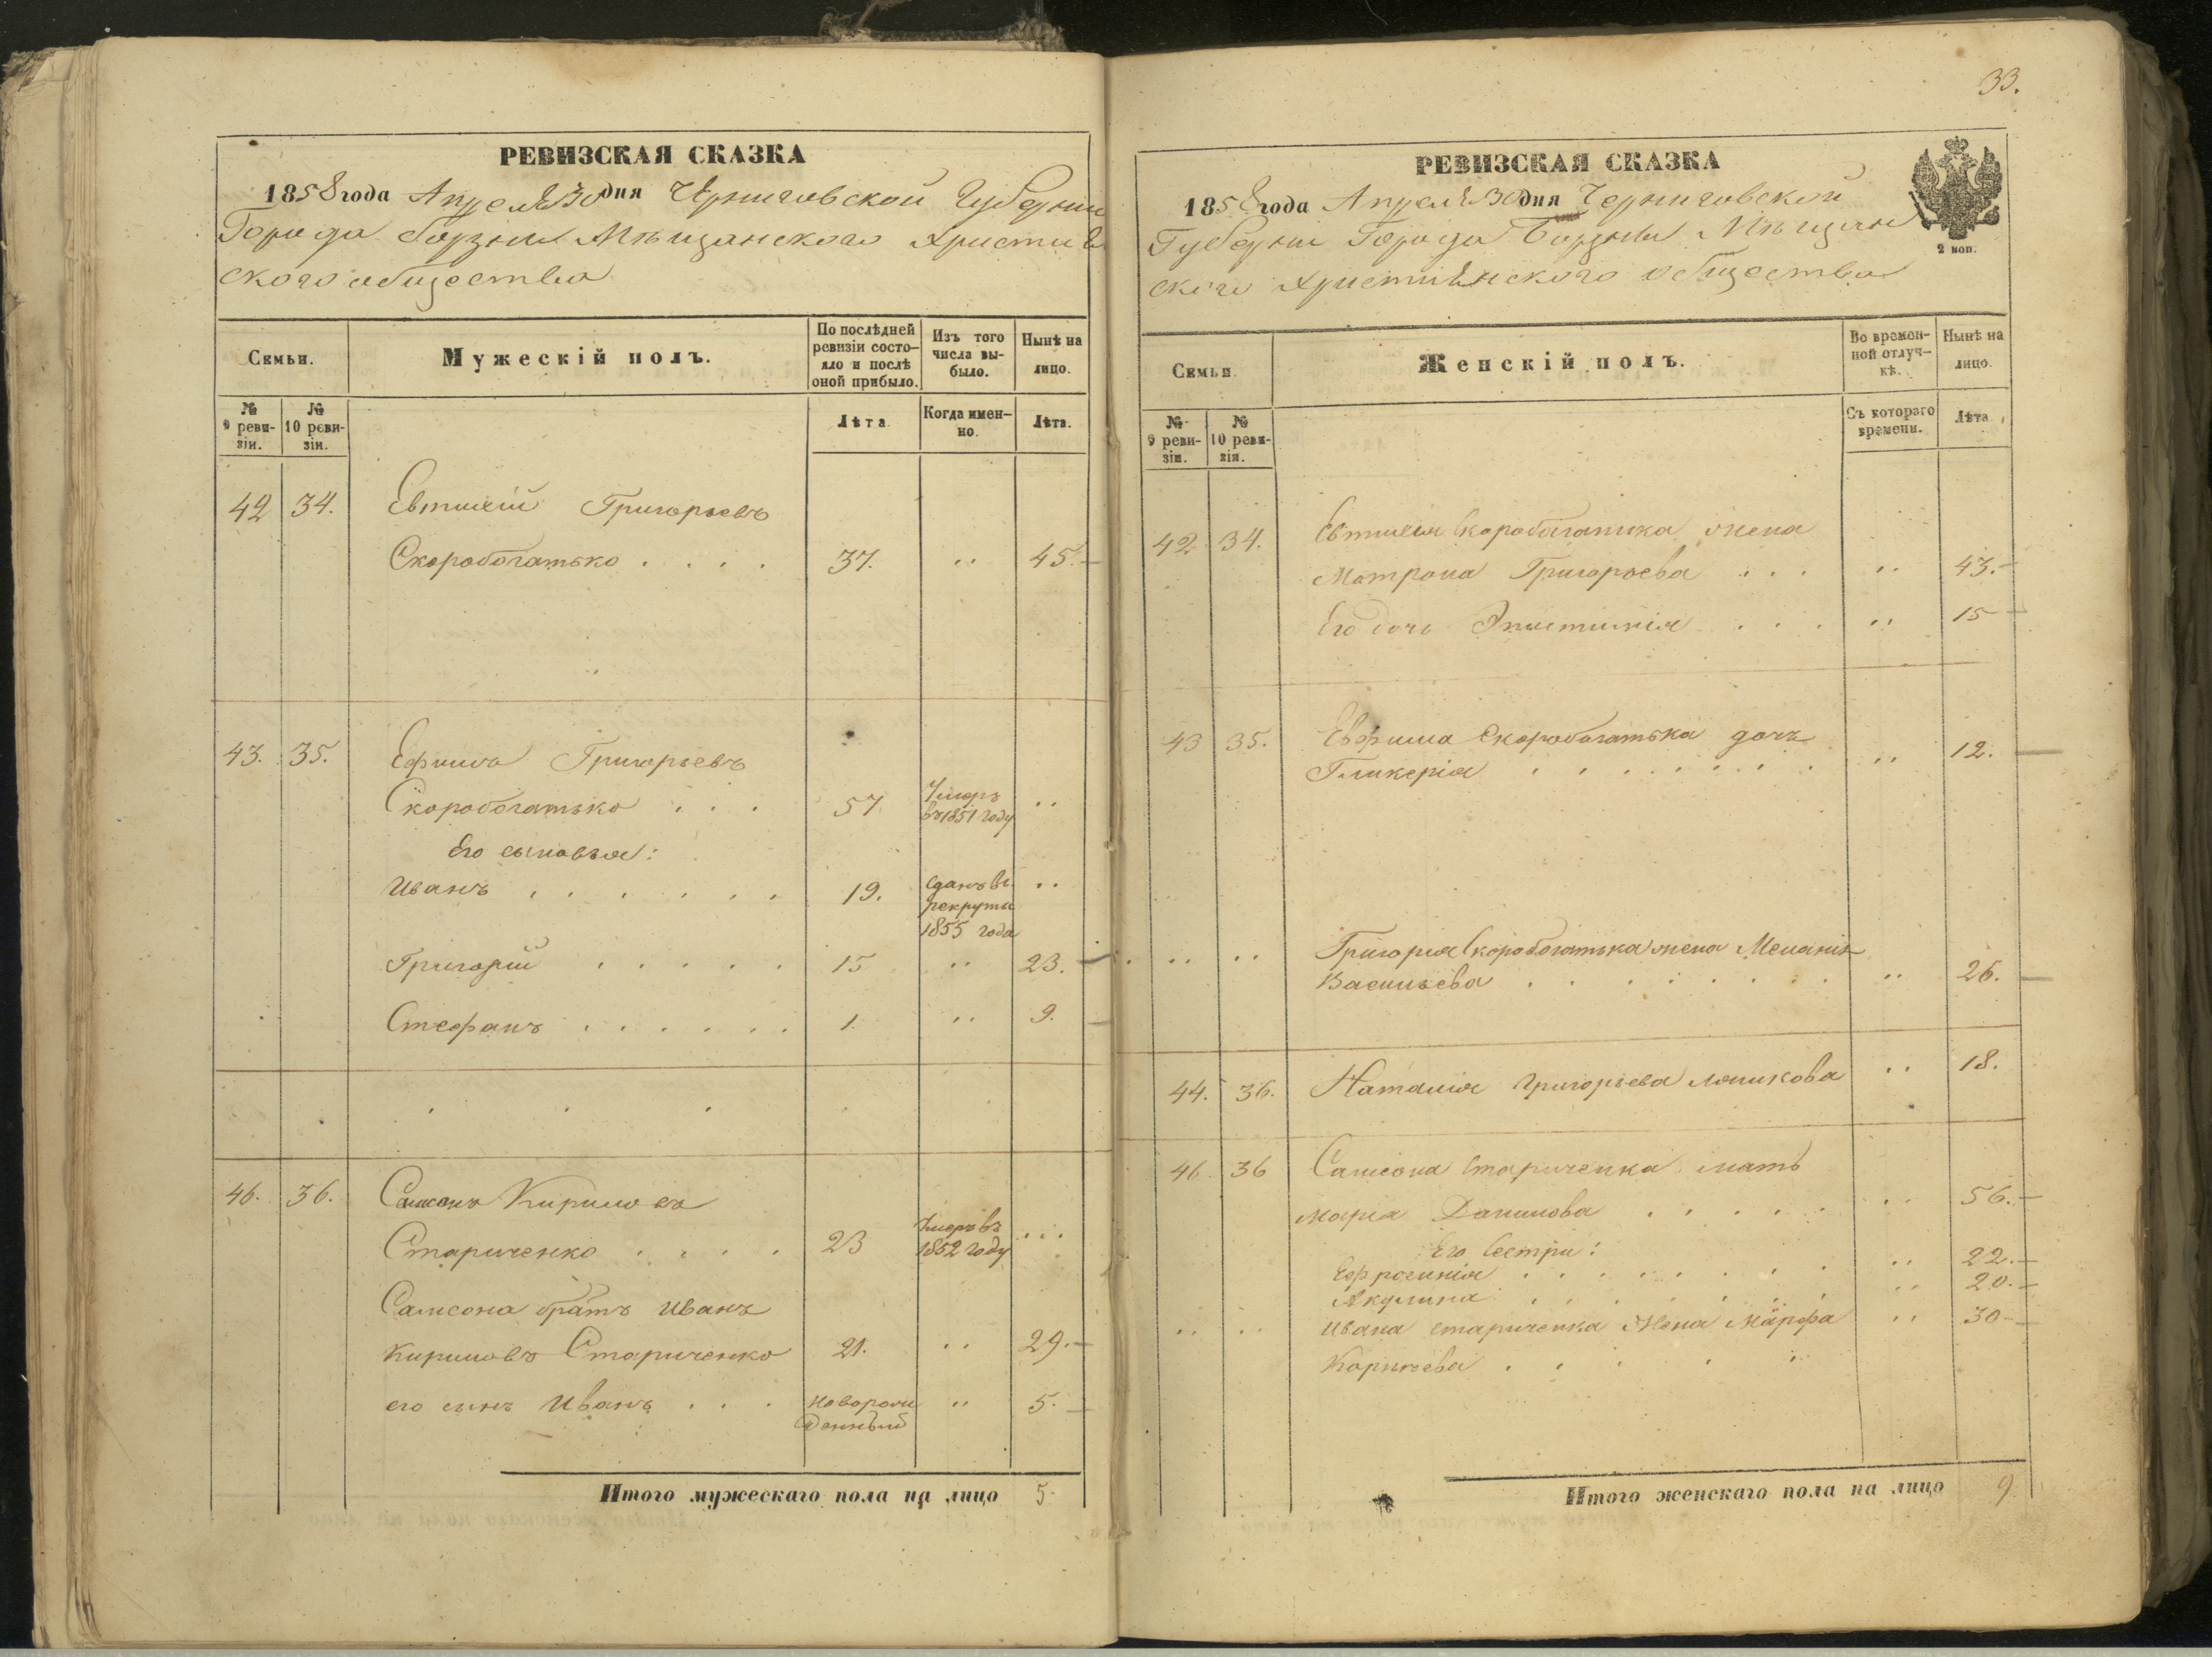 РЕВИЗСКАЯ СКАЗКА
1858 года Апреля 30 дня Черниговской Губернии
Города Борзны Мѣщанского Христиан
ского общества
Семьи.
Мужескій полъ.
По послѣдней ревизіи состо-
яло и послѣ оной прибыло.
Изъ того числа вы-
было.
Нынѣ на лицо.
№ 9 реви-
зіи.
№ 10 реви-
зіи.
Лѣта
Когда имен-
но.
Лѣта.
42 34. Евтихій Григорьевъ
Скоробогатько . . . . 37. " 45.
43. 35. Ефимъ Григорьевъ
Скоробогатько . . . 57. Умеръ въ 1851 году "
Его сыновья:
Иванъ . . . . . . 19. сданъ въ рекруты 1855 года "
Григорій . . . . . 15 " 23.
Стефанъ . . . . . . 1. " 9.
46. 36. Самсонъ Кириловъ
Стариченко . . . . 23 Умеръ въ 1852 году "
Самсона братъ Иванъ
Кириловъ Стариченко 21. " 29.
его сынъ Иванъ . . . новорож
денный " 5.
Итого мужескаго пола на лицо 5.
33.
РЕВИЗСКАЯ СКАЗКА
1858 года Апреля 30 дня Черниговской
Губернии Города Борзны Мѣщан
ского Христианского общества
2 коп.
Семьи.
Женскій полъ.
Во времен-
ной отлуч-
кѣ.
Нынѣ на лицо.
№ 9 реви-
зіи.
№ 10 реви-
зіи.
Съ котораго времени.
Лѣта
42 34. Евтихія Скоробогатька жена
Матрона Григорьева . . . " 43.
Его дочь Эпистимія . . . " 15
43 35. Евфима Скоробогатька дочь
Гликерія . . . . . . . . " 12.
" " Григорія Скоробогатька жена Меланія
Васильева . . . . . . . " 26.
44. 36. Наталія Григорьева " 18.
46 36 Самсона Стариченка мать
Марія Данилова . . . . . " 56.
Его сестри:
Ефросинія . . . . . . . . " 22.
Акулина . . . . . . . " 20.
" " Ивана Стариченка жена Марфа " 30
Корнѣева . . . . .
Итого женскаго пола на лицо 9